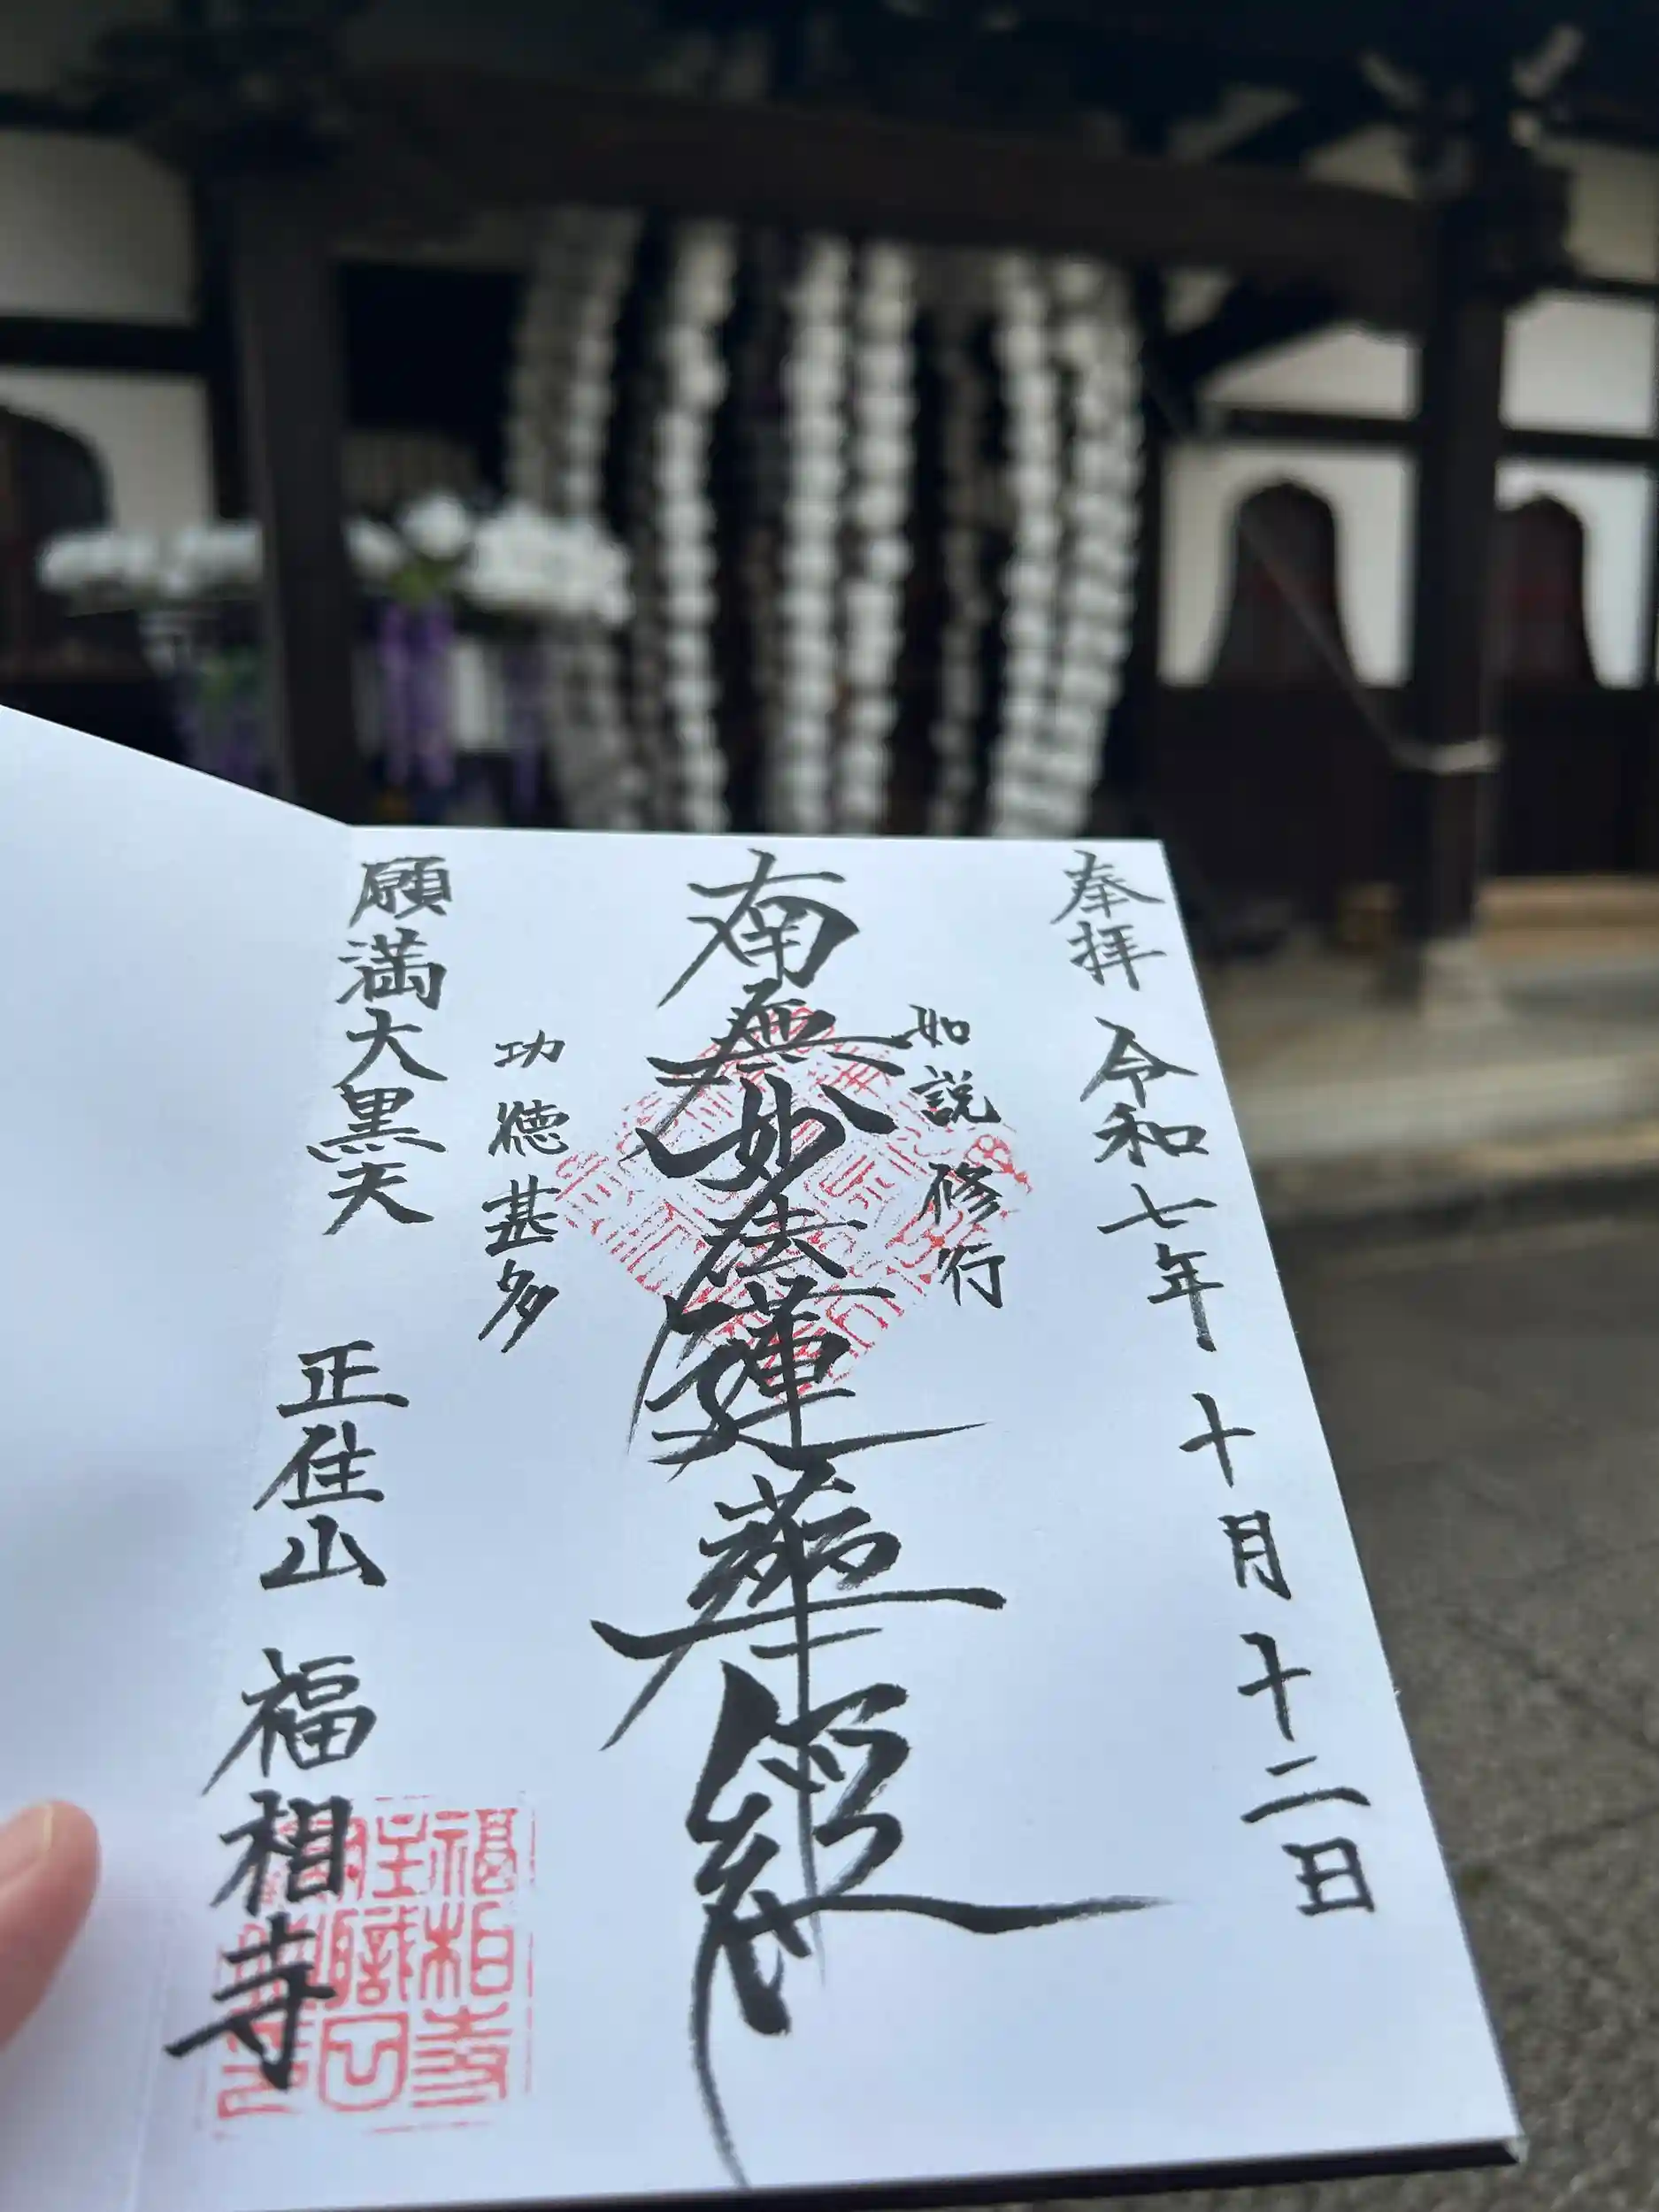 奉拝 令和七年 十月 十二日
如説修行
南無妙法蓮華経
功徳甚多
願満大黒天 正住山 福相寺